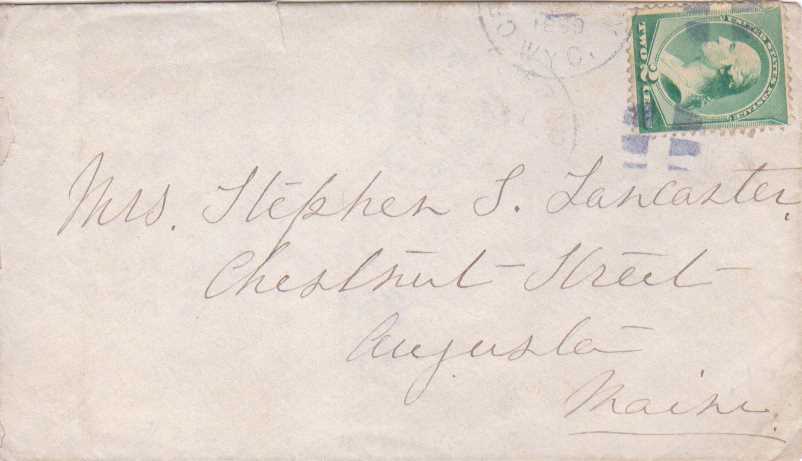 WYO.
UNITED STATES POSTAGE
TWO 2 CENTS
Mrs. Stephen S. Lancaster,
Chestnut Street
Augusta
Maine.